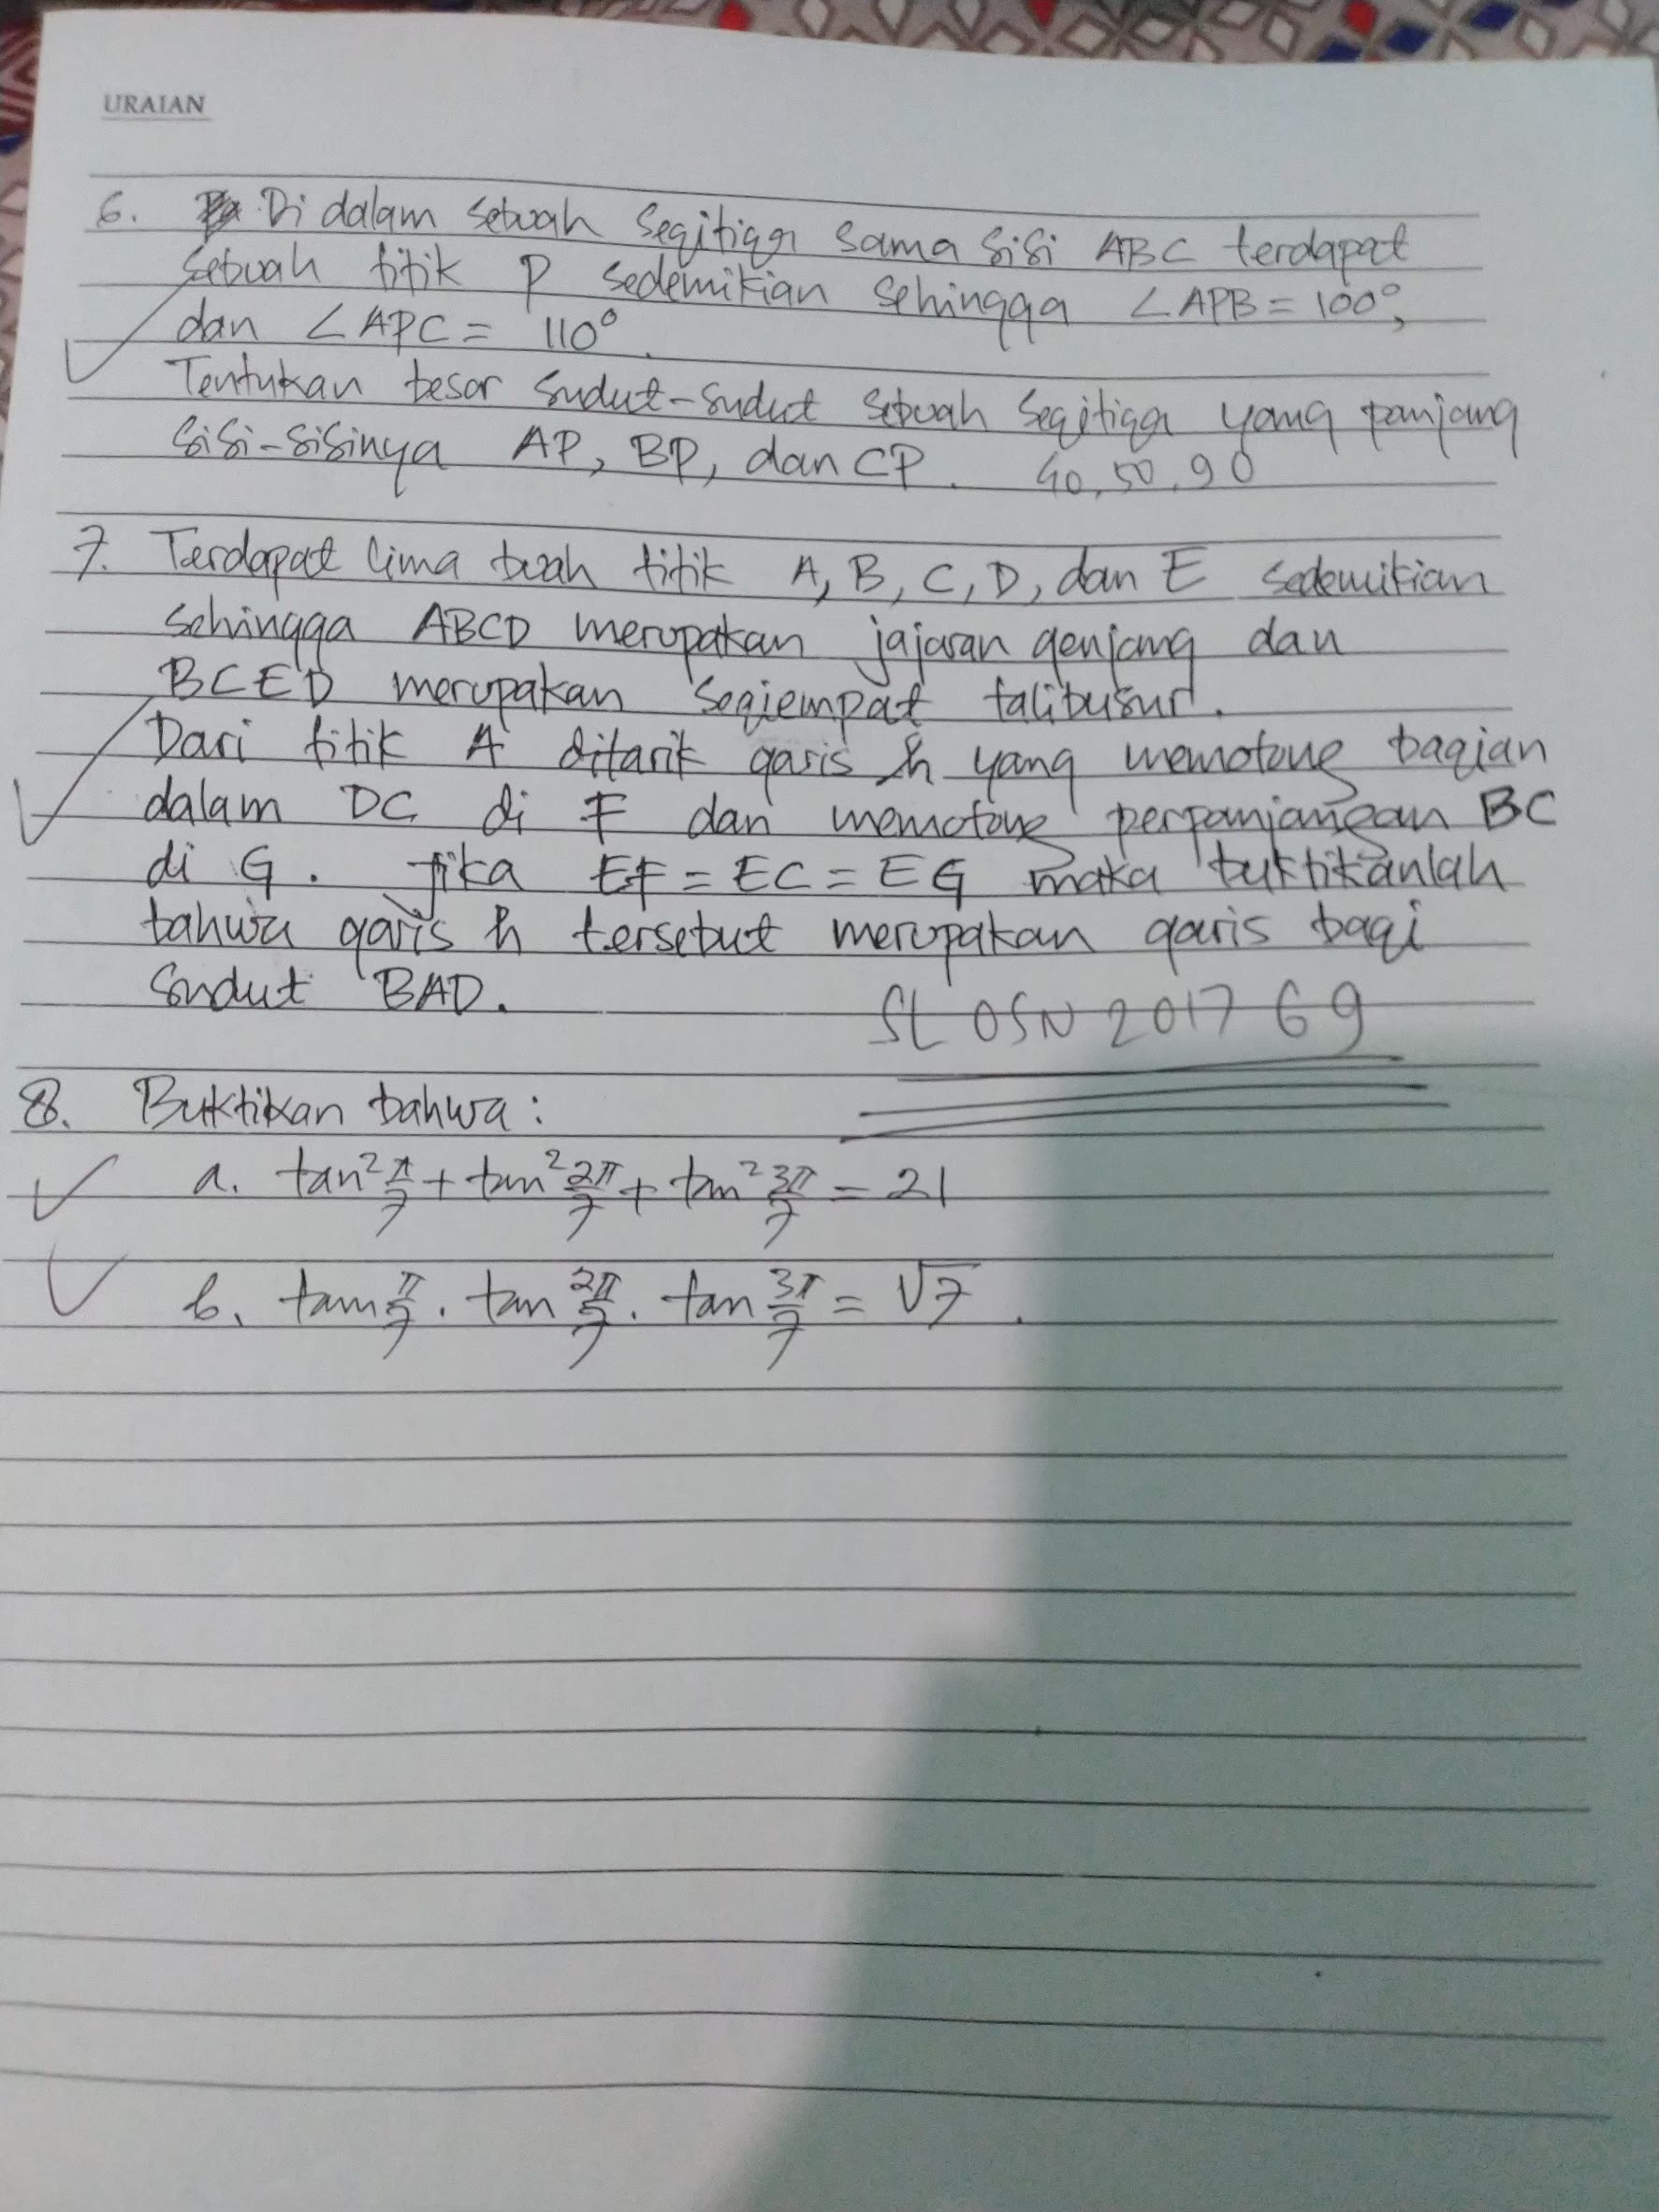 URAIAN
6. Di dalam sebuah segitiga sama sisi ABC terdapat
sebuah titik P sedemikian sehingga ∠APB = 100°,
dan ∠APC = 110°.
Tentukan besar sudut-sudut sebuah segitiga yang panjang
sisi-sisinya AP, BP, dan CP. 40, 50, 90
7. Terdapat lima buah titik A, B, C, D, dan E sedemikian
sehingga ABCD merupakan jajaran genjang dan
BCED merupakan segiempat talibusur.
Dari titik A ditarik garis h yang memotong bagian
dalam DC di F dan memotong perpanjangan BC
di G. Jika EF = EC = EG maka buktikanlah
bahwa garis h tersebut merupakan garis bagi
sudut BAD.
SL OSN 2017 G9
8. Buktikan bahwa:
a. tan² π/7 + tan² 2π/7 + tan² 3π/7 = 21
b. tan π/7 . tan 2π/7 . tan 3π/7 = √7 .